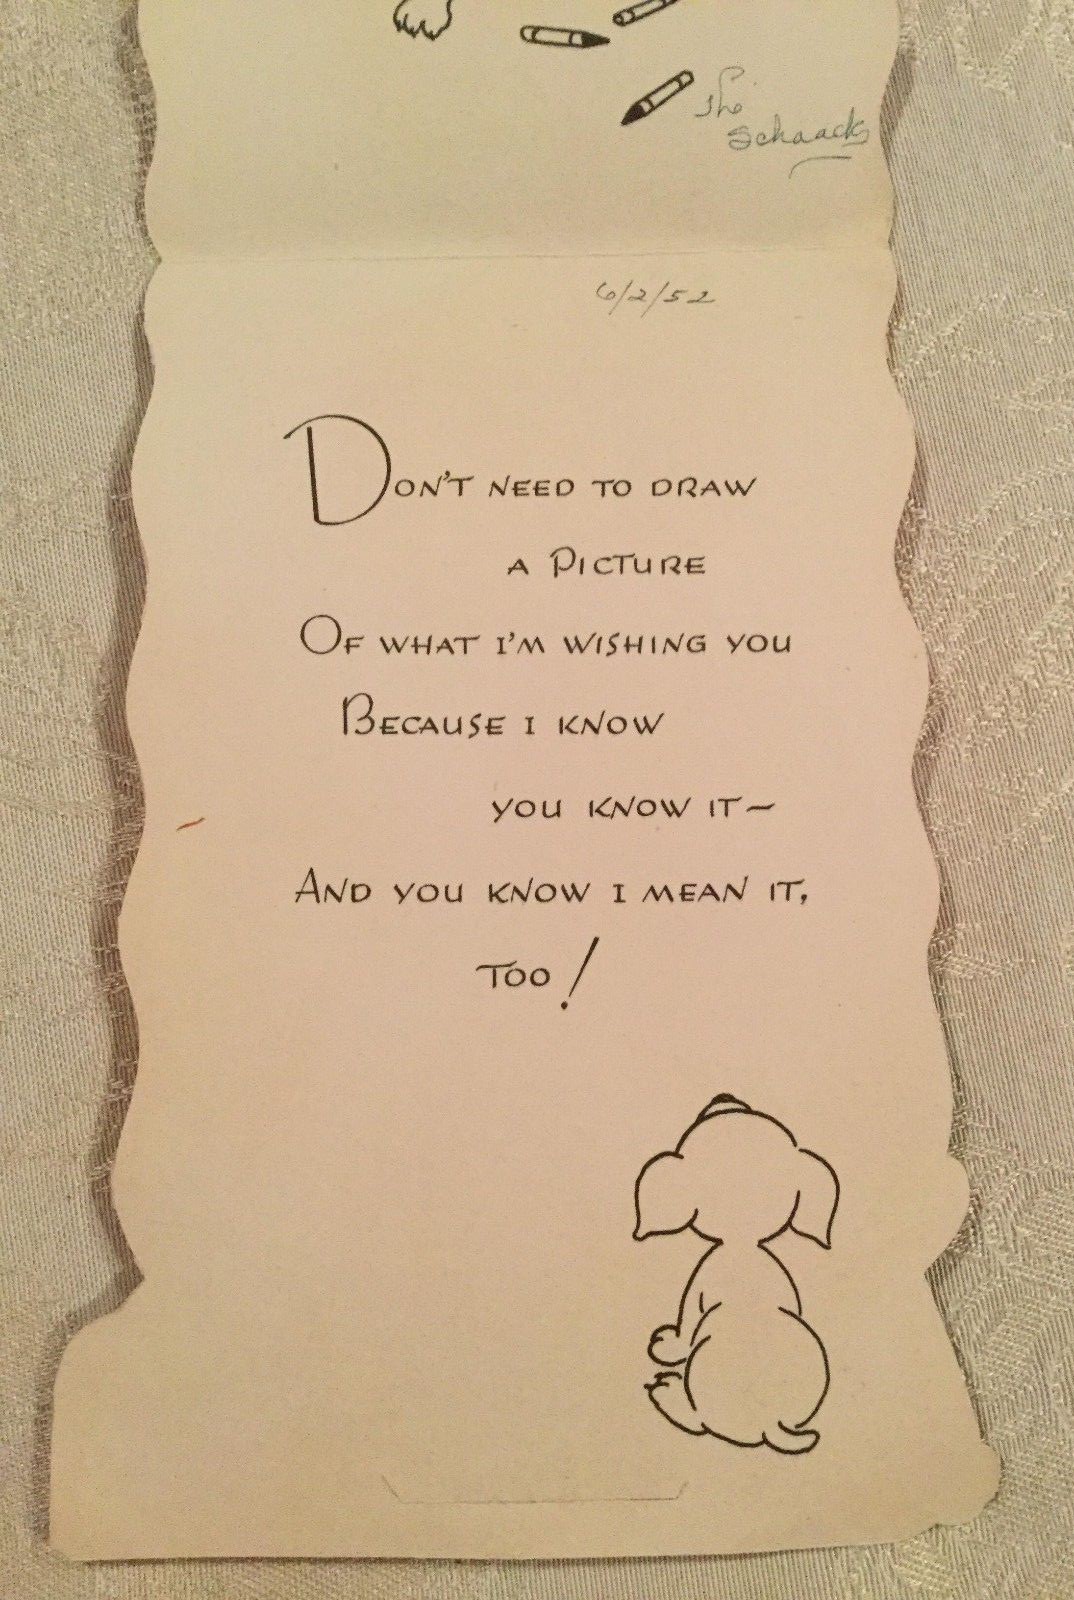 The
Schaacks
6/2/52
DON'T NEED TO DRAW
A PICTURE
OF WHAT I'M WISHING YOU
BECAUSE I KNOW
YOU KNOW IT~
AND YOU KNOW I MEAN IT,
TOO!